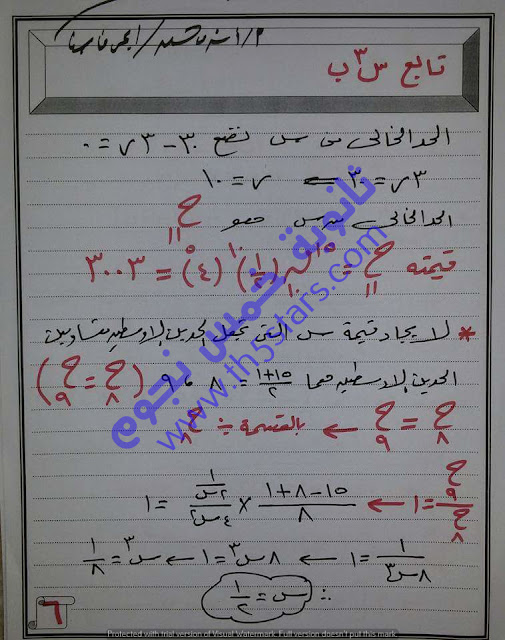 تابع س٣ ب
الحد الخالى من س نضع ٣٠ - ٣ر = ٠
٣ر = ٣٠ ⇐ ر = ١٠
الحد الخالى من س هو ح١١
قيمته ح١١ = ١٥ق١٠ (١/٢)١٠ (٤)٥ = ٣٠٠٣
* لايجاد قيمة س التى تجعل الحدين الاوسطين متساويين
الحدين الاوسطين هما (١٥+١)/٢ = ٨ ، ٩ (ح٨ = ح٩)
ح٨ = ح٩ ← بالقسمة ÷ ح٨
ح٩/ح٨ = ١ ← (١٥-٨+١)/٨ × (١/٢س)/(٤س٢) = ١
١/(٨س٣) = ١ ← ٨س٣ = ١ ← س٣ = ١/٨
∴ س = ١/٢
٦
ثانوية خمس نجوم
www.th5stars.com
Protected with trial version of Visual Watermark. Full version doesn't put this mark.